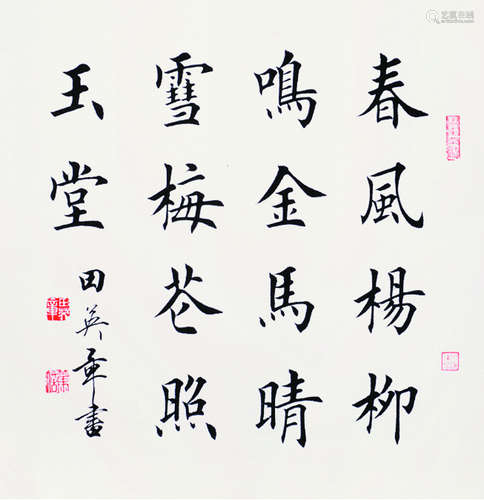 春風楊柳
鳴金馬晴
雪梅花照
玉堂
田英章書